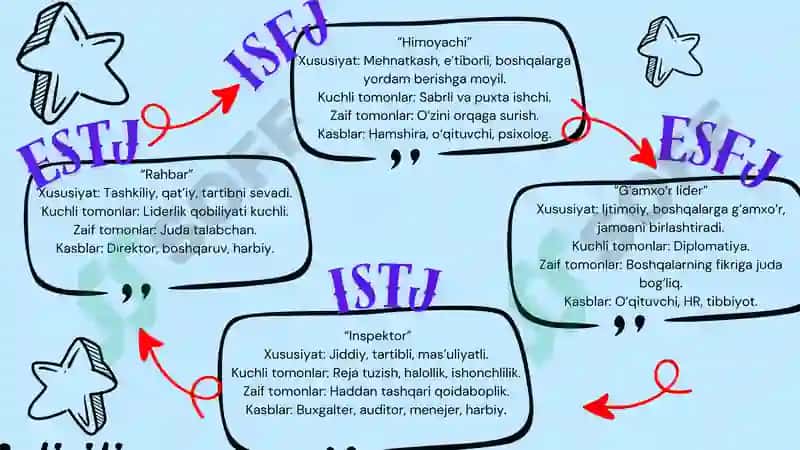 ISFJ
“Himoyachi”
Xususiyat: Mehnatkash, e’tiborli, boshqalarga
yordam berishga moyil.
Kuchli tomonlar: Sabrli va puxta ishchi.
Zaif tomonlar: O‘zini orqaga surish.
Kasblar: Hamshira, o‘qituvchi, psixolog.
ESTJ
“Rahbar”
Xususiyat: Tashkiliy, qat’iy, tartibni sevadi.
Kuchli tomonlar: Liderlik qobiliyati kuchli.
Zaif tomonlar: Juda talabchan.
Kasblar: Direktor, boshqaruv, harbiy.
ESFJ
“G‘amxo‘r lider”
Xususiyat: Ijtimoiy, boshqalarga g‘amxo‘r,
jamoani birlashtiradi.
Kuchli tomonlar: Diplomatiya.
Zaif tomonlar: Boshqalarning fikriga juda
bog‘liq.
Kasblar: O‘qituvchi, HR, tibbiyot.
ISTJ
“Inspektor”
Xususiyat: Jiddiy, tartibli, mas’uliyatli.
Kuchli tomonlar: Reja tuzish, halollik, ishonchlilik.
Zaif tomonlar: Haddan tashqari qoidaboplik.
Kasblar: Buxgalter, auditor, menejer, harbiy.